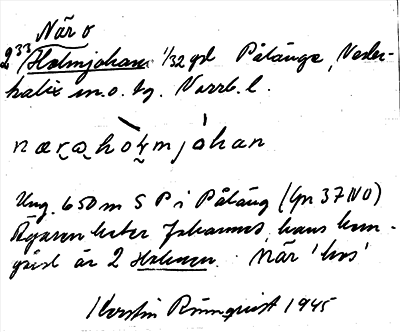 När o
2³³ Holmjohan 1/32 gd Pålänge, Neder-
kalix sn. o. tg. Norrb. l.
næræ hòlmjòhan
Ung. 650 m S P i Påläng (Gn 37 NO)
Ägaren heter Johannes, hans hem-
är 2 Holmen. När 'hos'
Kerstin Rönnqvist 1945